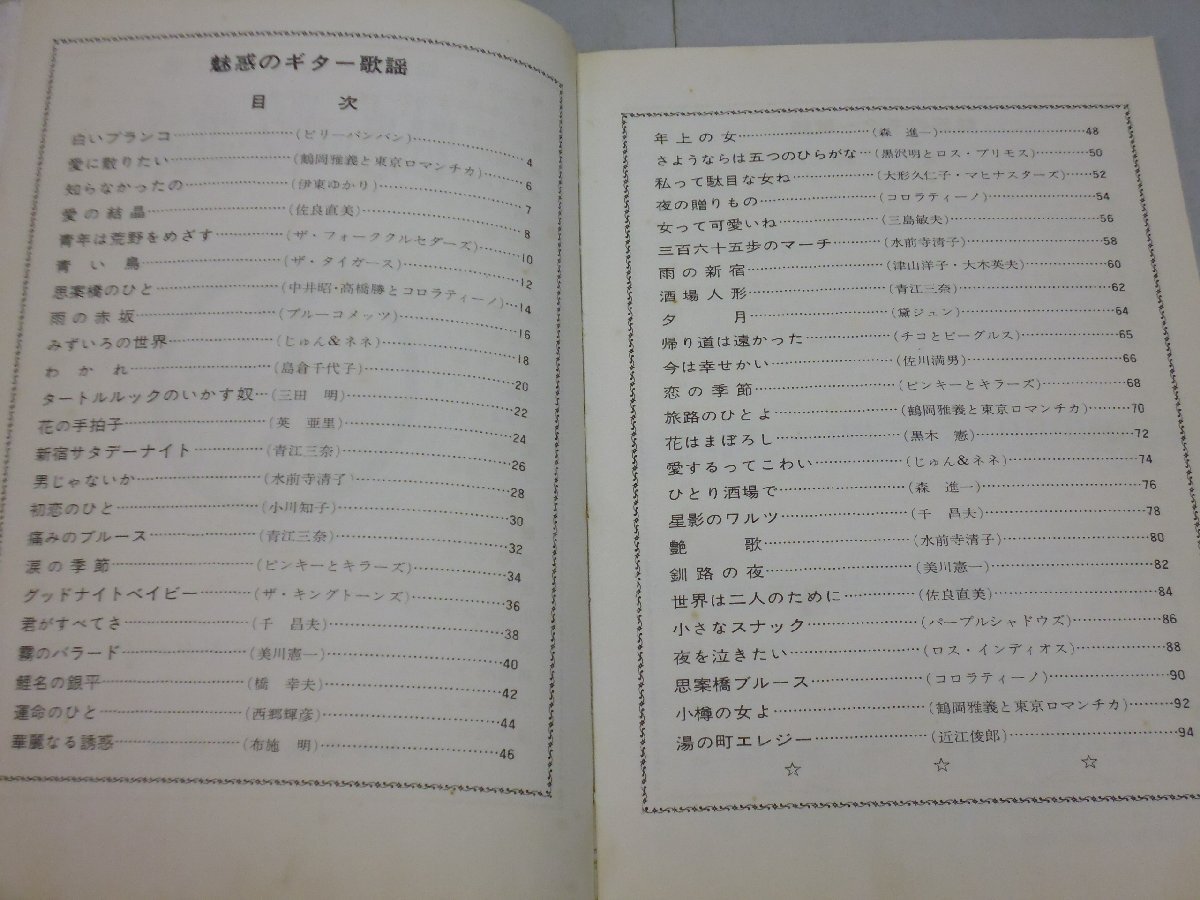 魅惑のギター歌謡
目 次
白いブランコ…(ビリーバンバン)…4
愛に散りたい…(鶴岡雅義と東京ロマンチカ)…6
知らなかったの…(伊東ゆかり)…7
愛の結晶…(佐良直美)…8
青年は荒野をめざす…(ザ・フォーククルセダーズ)…10
青い鳥…(ザ・タイガース)…12
思案橋のひと…(中井昭・高橋勝とコロラティーノ)…14
雨の赤坂…(ブルーコメッツ)…16
みずいろの世界…(じゅん&ネネ)…18
わかれ…(島倉千代子)…20
タートルルックのいかす奴…(三田 明)…22
花の手拍子…(英 亜里)…24
新宿サタデーナイト…(青江三奈)…26
男じゃないか…(水前寺清子)…28
初恋のひと…(小川知子)…30
痛みのブルース…(青江三奈)…32
涙の季節…(ピンキーとキラーズ)…34
グッドナイトベイビー…(ザ・キングトーンズ)…36
君がすべてさ…(千 昌夫)…38
霧のバラード…(美川憲一)…40
鯉名の銀平…(橋 幸夫)…42
運命のひと…(西郷輝彦)…44
華麗なる誘惑…(布施 明)…46
年上の女…(森 進一)…48
さようならは五つのひらがな…(黒沢明とロス・プリモス)…50
私って駄目な女ね…(大形久仁子・マヒナスターズ)…52
夜の贈りもの…(コロラティーノ)…54
女って可愛いね…(三島敏夫)…56
三百六十五歩のマーチ…(水前寺清子)…58
雨の新宿…(津山洋子・大木英夫)…60
酒場人形…(青江三奈)…62
夕 月…(黛ジュン)…64
帰り道は遠かった…(チコとビーグルス)…65
今は幸せかい…(佐川満男)…66
恋の季節…(ピンキーとキラーズ)…68
旅路のひとよ…(鶴岡雅義と東京ロマンチカ)…70
花はまぼろし…(黒木 憲)…72
愛するってこわい…(じゅん&ネネ)…74
ひとり酒場で…(森 進一)…76
星影のワルツ…(千 昌夫)…78
艶 歌…(水前寺清子)…80
釧路の夜…(美川憲一)…82
世界は二人のために…(佐良直美)…84
小さなスナック…(パープルシャドウズ)…86
夜を泣きたい…(ロス・インディオス)…88
思案橋ブルース…(コロラティーノ)…90
小樽の女よ…(鶴岡雅義と東京ロマンチカ)…92
湯の町エレジー…(近江俊郎)…94
☆ ☆ ☆